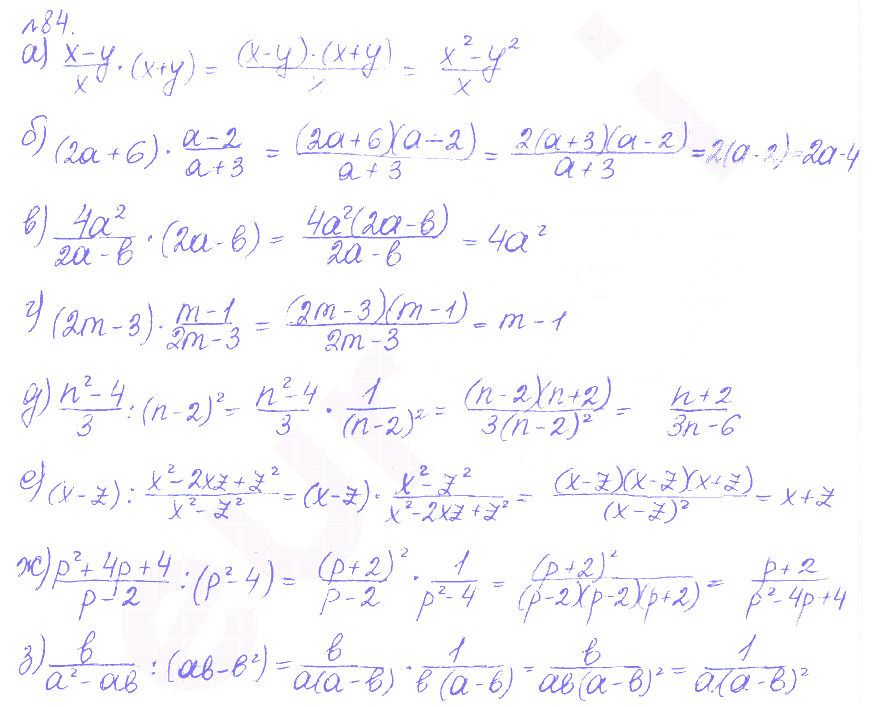 №84.
а) \frac{x-y}{x} · (x+y) = \frac{(x-y)·(x+y)}{x} = \frac{x^2-y^2}{x}
б) (2a+6) · \frac{a-2}{a+3} = \frac{(2a+6)(a-2)}{a+3} = \frac{2(a+3)(a-2)}{a+3} = 2(a-2) = 2a-4
в) \frac{4a^2}{2a-b} · (2a-b) = \frac{4a^2(2a-b)}{2a-b} = 4a^2
г) (2m-3) · \frac{m-1}{2m-3} = \frac{(2m-3)(m-1)}{2m-3} = m-1
д) \frac{n^2-4}{3} : (n-2)^2 = \frac{n^2-4}{3} · \frac{1}{(n-2)^2} = \frac{(n-2)(n+2)}{3(n-2)^2} = \frac{n+2}{3n-6}
е) (x-z) : \frac{x^2-2xz+z^2}{x^2-z^2} = (x-z) · \frac{x^2-z^2}{x^2-2xz+z^2} = \frac{(x-z)(x-z)(x+z)}{(x-z)^2} = x+z
ж) \frac{p^2+4p+4}{p-2} : (p^2-4) = \frac{(p+2)^2}{p-2} · \frac{1}{p^2-4} = \frac{(p+2)^2}{(p-2)(p-2)(p+2)} = \frac{p+2}{p^2-4p+4}
з) \frac{b}{a^2-ab} : (ab-b^2) = \frac{b}{a(a-b)} · \frac{1}{b(a-b)} = \frac{b}{ab(a-b)^2} = \frac{1}{a(a-b)^2}